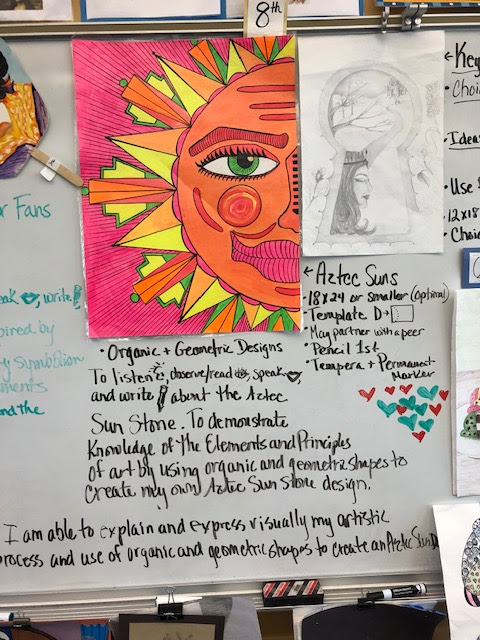 8th
← Key
• Choi
• Ideas
• Use
12x18
• Choic
or Fans
eak, write
pired by
ry Symbolism
ements
and the
← Aztec Suns
• 18x24 or smaller (Optional)
• Template D →
• May partner with a peer
• Pencil 1st
• Tempera + Permanent
Marker
• Organic + Geometric Designs
To listen, observe/read, speak,
and write about the Aztec
Sun Stone. To demonstrate
Knowledge of the Elements and Principles
of art by using organic and geometric shapes to
create my own Aztec Sun Stone design.
I am able to explain and express visually my artistic
process and use of organic and geometric shapes to create an Aztec Sun D